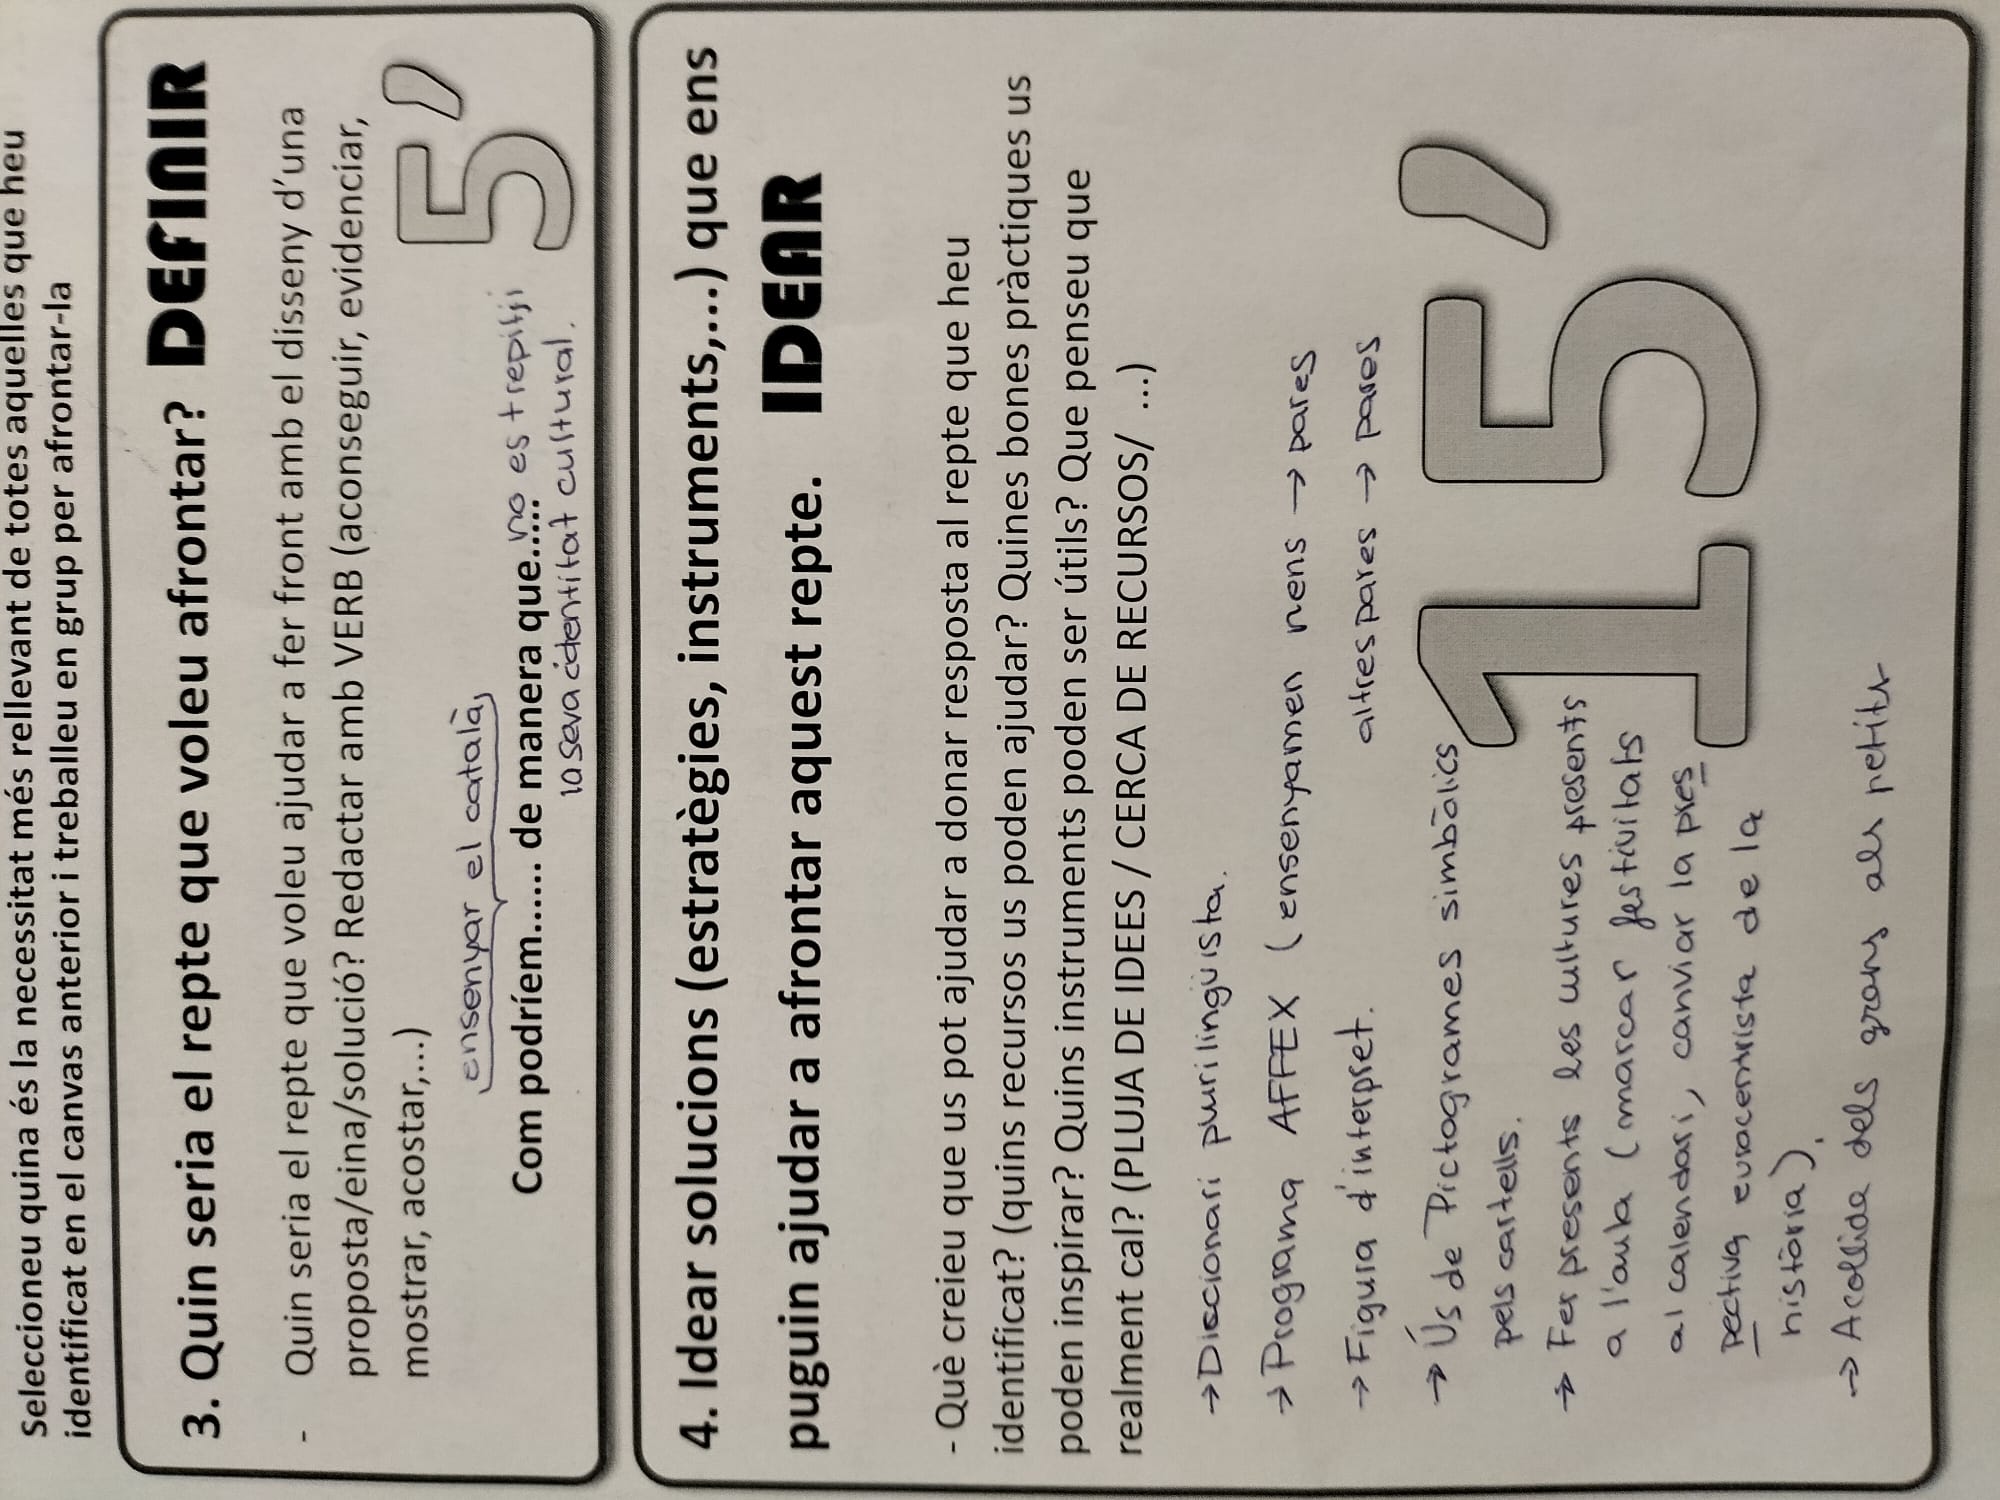 Seleccioneu quina és la necessitat més rellevant de totes aquelles que heu
identificat en el canvas anterior i treballeu en grup per afrontar-la
3. Quin seria el repte que voleu afrontar? DEFINIR
- Quin seria el repte que voleu ajudar a fer front amb el disseny d'una
proposta/eina/solució? Redactar amb VERB (aconseguir, evidenciar,
mostrar, acostar,...)
5'
ensenyar el català,
Com podríem...... de manera que.... no es trepitji
la seva identitat cultural.
4. Idear solucions (estratègies, instruments,...) que ens
puguin ajudar a afrontar aquest repte. IDEAR
- Què creieu que us pot ajudar a donar resposta al repte que heu
identificat? (quins recursos us poden ajudar? Quines bones pràctiques us
poden inspirar? Quins instruments poden ser útils? Que penseu que
realment cal? (PLUJA DE IDEES / CERCA DE RECURSOS/ ...)
→ Diccionari plurilingüista.
→ Programa AFFEX (ensenyamen nens → pares
→ Figura d'intèrpret. altres pares → pares
→ Ús de Pictogrames simbòlics
pels cartells.
15'
→ Fer presents les cultures presents
a l'aula (marcar festivitats
al calendari, canviar la pers
pectiva eurocentrista de la
història).
→ Acollida dels grans als petits